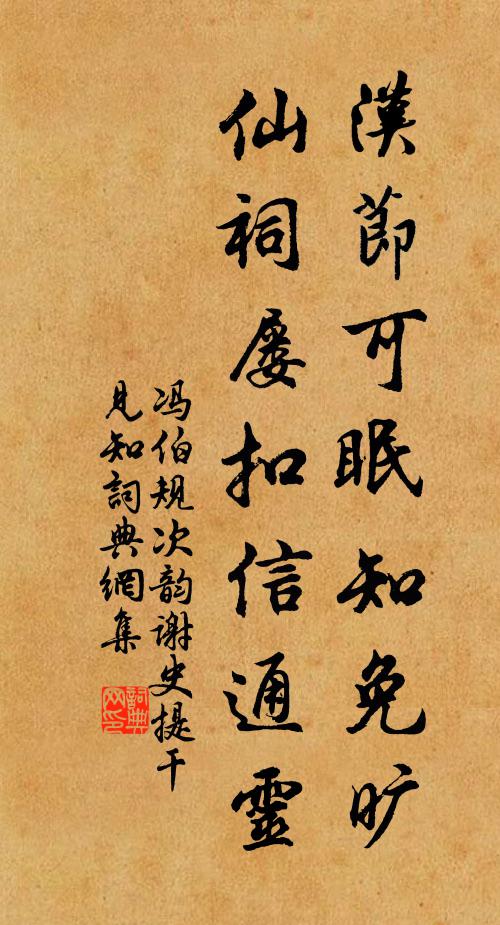 漢節可眠知免旷
仙祠屡扣信通靈
冯伯规次韵谢史提干
見知詞典網集
詞典网印